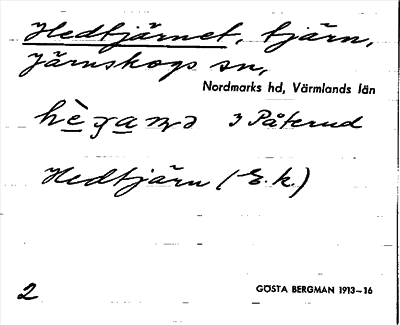 Hedtjärnet, tjärn,
Järnskogs sn,
Nordmarks hd, Värmlands län
3 Påterud
Hedtjärn (E. k.)
2
GÖSTA BERGMAN 1913–16